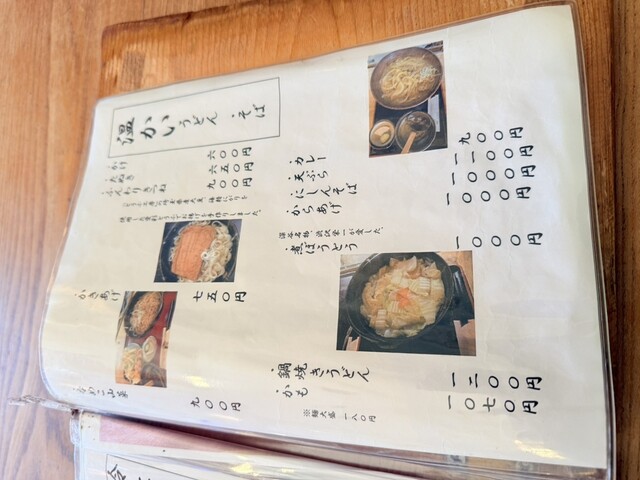 温かいうどん・そば
・かけ 六〇〇円
・たぬき 六五〇円
・ふんわりきつね 九〇〇円
・かきあげ 七五〇円
・なめこ山菜 九〇〇円
・カレー 九〇〇円
・天ぷら 一一〇〇円
・にしんそば 一〇〇〇円
・からあげ 一〇〇〇円
深谷名物、渋沢栄一が愛した、
・煮ぼうとう 一〇〇〇円
・鍋焼きうどん 一二〇〇円
・かも 一〇七〇円
※麺大盛 一八〇円